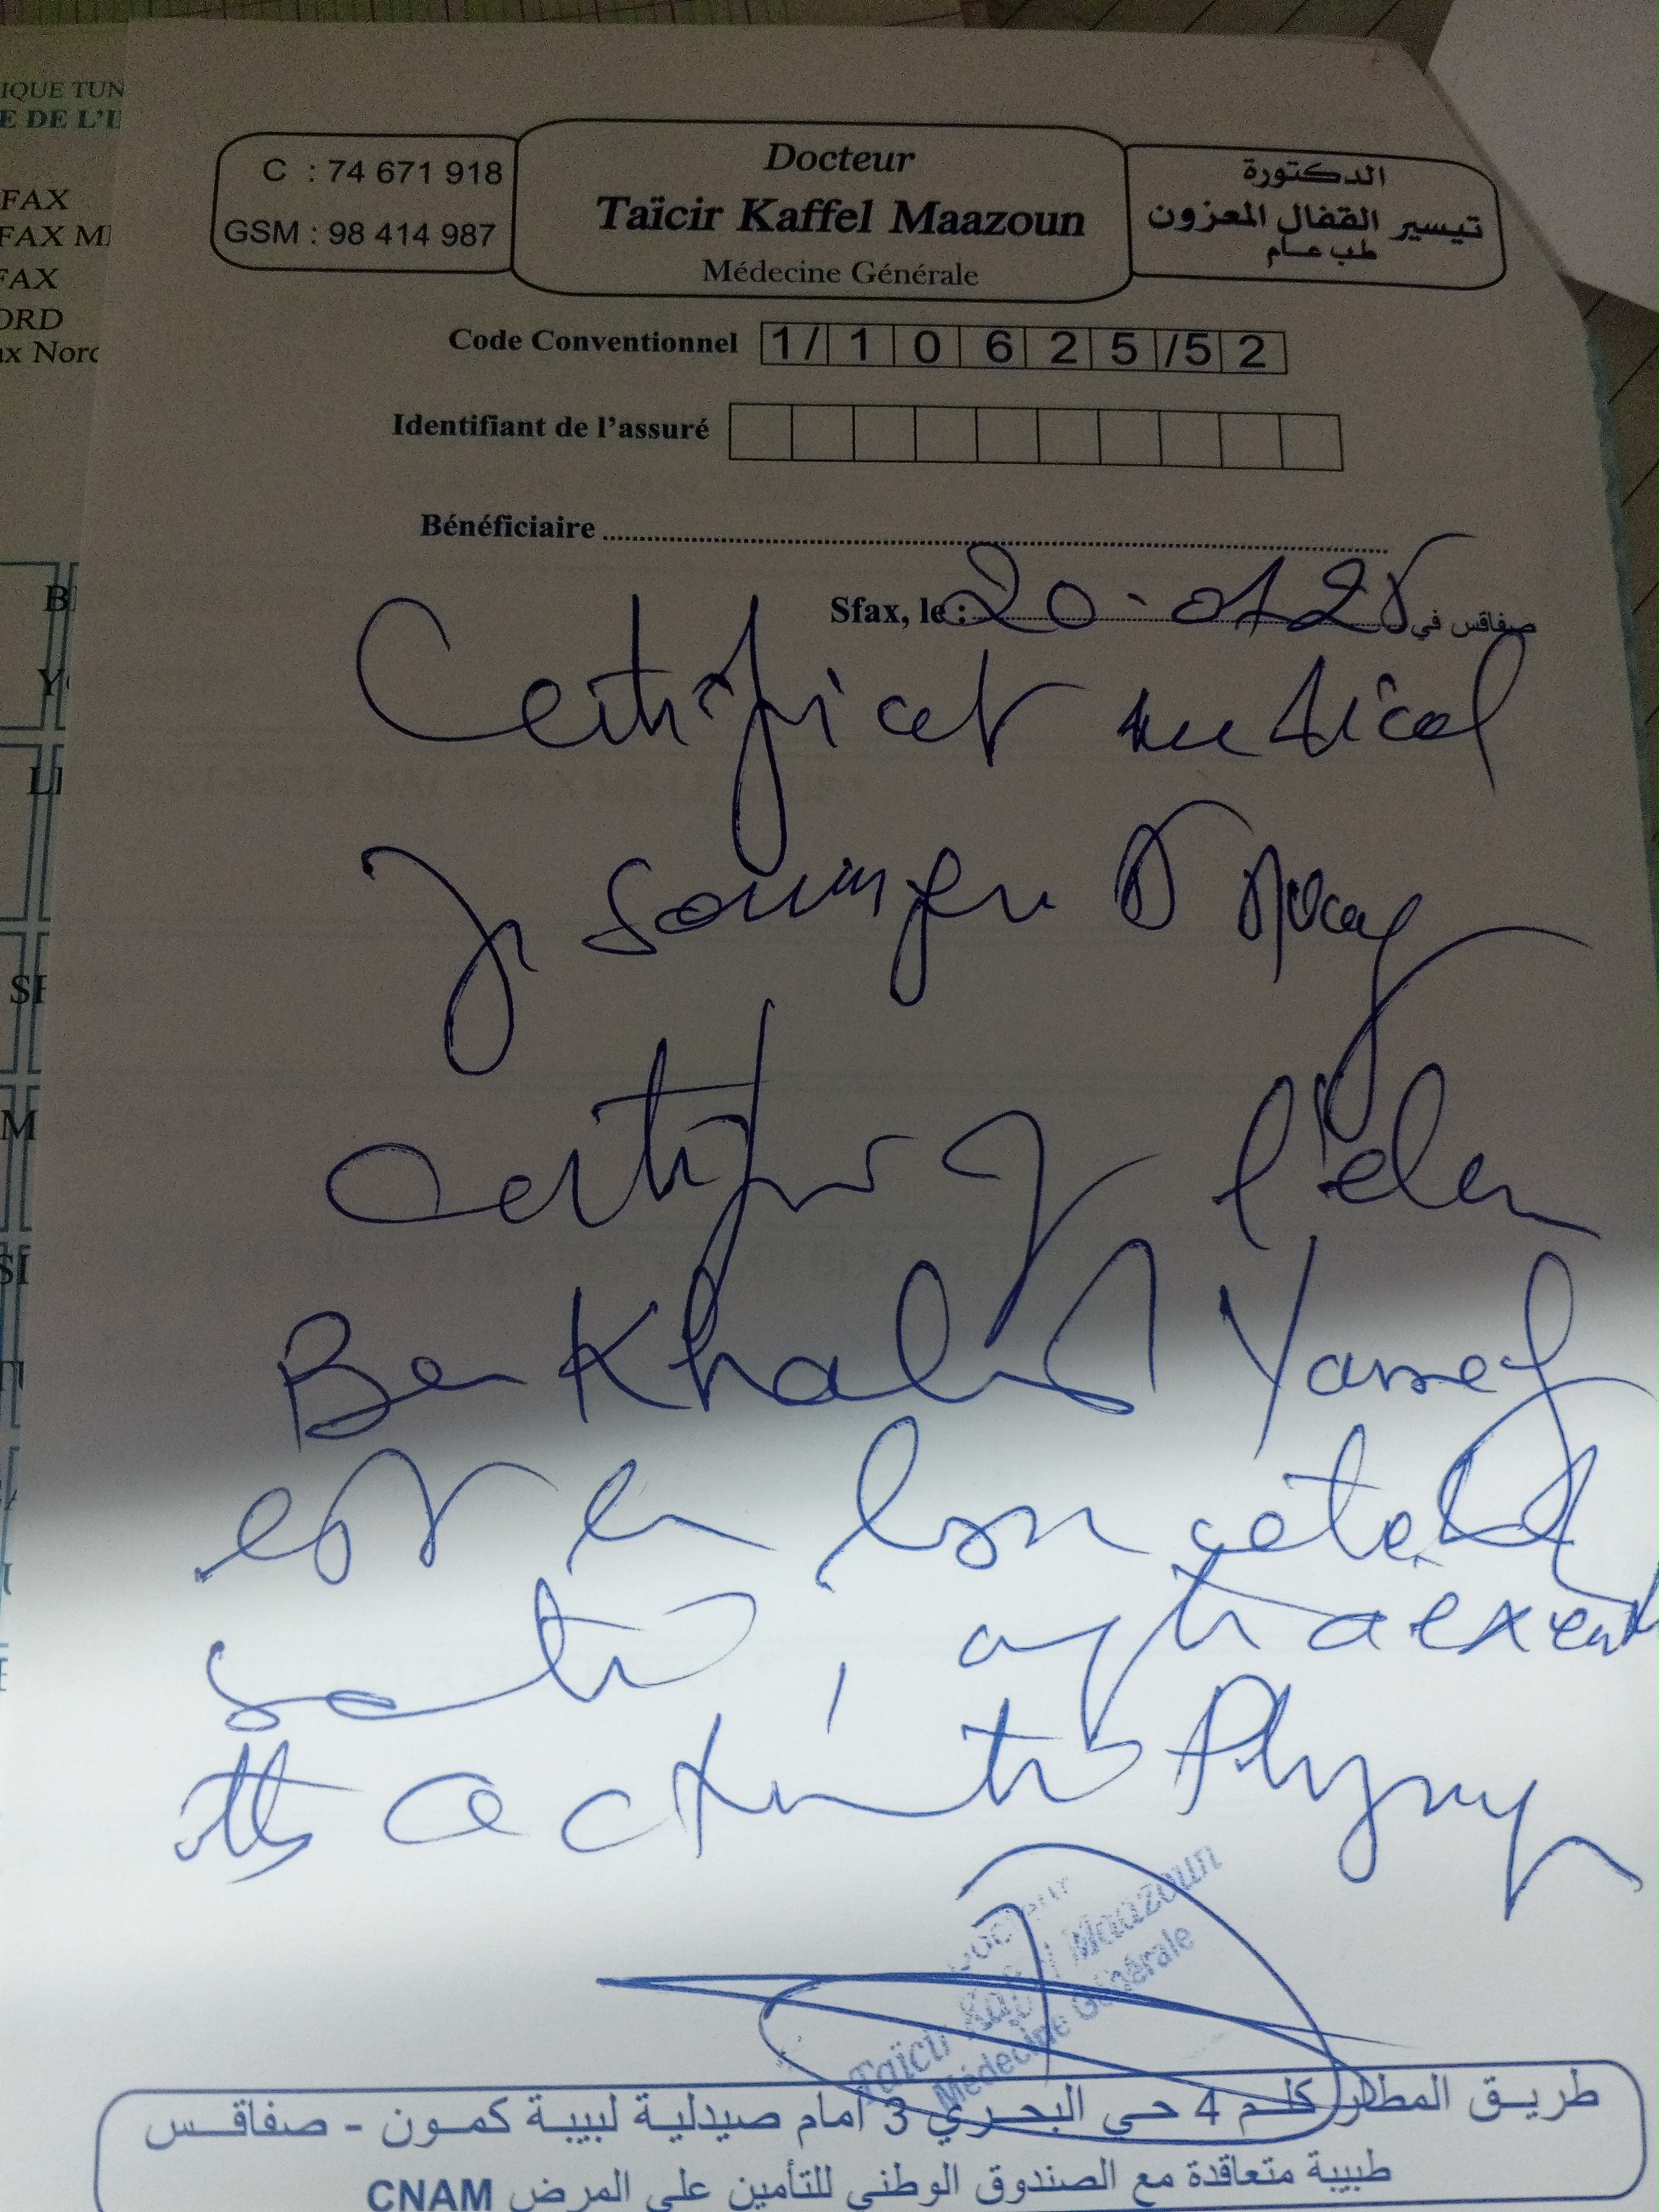 IQUE TUN
E DE L'I
FAX
FAX M
FAX
ORD
ax Nord
C : 74 671 918
GSM : 98 414 987
Docteur
Taïcir Kaffel Maazoun
Médecine Générale
الدكتورة
تيسير القفال المعزون
طب عام
Code Conventionnel 1/10625/52
Identifiant de l'assuré
Bénéficiaire
Sfax, le : 20-01 25 صفاقس في
Certificat medical
Je soussigné
certifie q l'élève
Ben Khalifa Yassef
est en bon état de
santé, apte à exercer
activité Physique
Docteur
Taïcir Kaffel Maazoun
Médecine Générale
طريق المطار كلم 4 حي البحري 3 أمام صيدلية لبيبة كمون - صفاقس
طبيبة متعاقدة مع الصندوق الوطني للتأمين على المرض CNAM